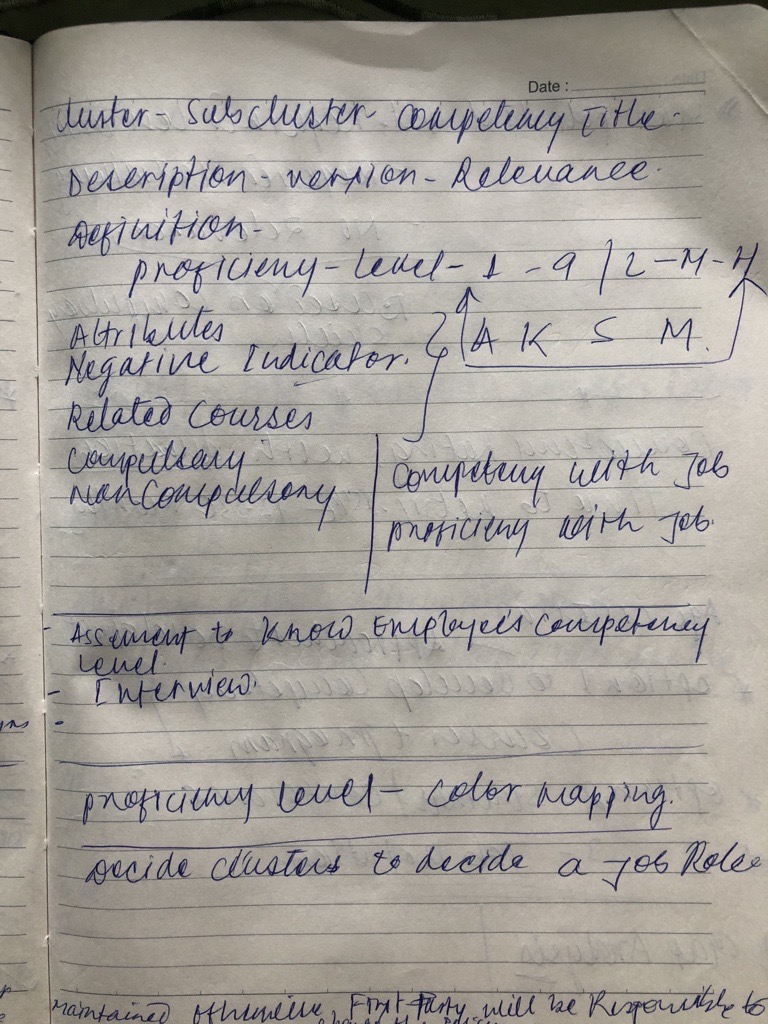 Date :
Cluster - Subcluster - Competency Title.
Description - version - Relevance.
Definition -
proficieny - Level - 1 - 9 / L - M - H
Attributes
A K S M.
Negative Indicator.
Related Courses
Compulsary
NonCompulsory
Competeny with Job
proficieny with Job.
- Assement to know Employee's Competency
Level.
- Interview.
-
proficieny Level - Color mapping.
Decide clusters to decide a Job Role
maintained otherwise First Party will be Responsible to